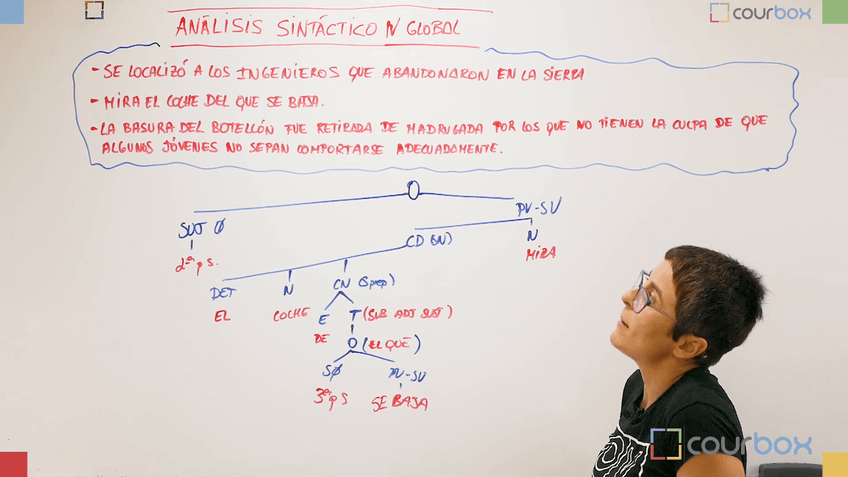 courbox
ANÁLISIS SINTÁCTICO N GLOBAL
- SE LOCALIZÓ A LOS INGENIEROS QUE ABANDONARON EN LA SIERRA
- MIRA EL COCHE DEL QUE SE BAJA.
- LA BASURA DEL BOTELLÓN FUE RETIRADA DE MADRUGADA POR LOS QUE NO TIENEN LA CULPA DE QUE
ALGUNOS JÓVENES NO SEPAN COMPORTARSE ADECUADAMENTE.
O
SUJ Ø PV-SV
2ª p S. CD (SN) N
MIRA
DET N CN (Sprep)
EL COCHE E T (SUB ADJ SUST)
DE O (EL QUE)
SØ PV-SV
3ª p S SE BAJA
courbox